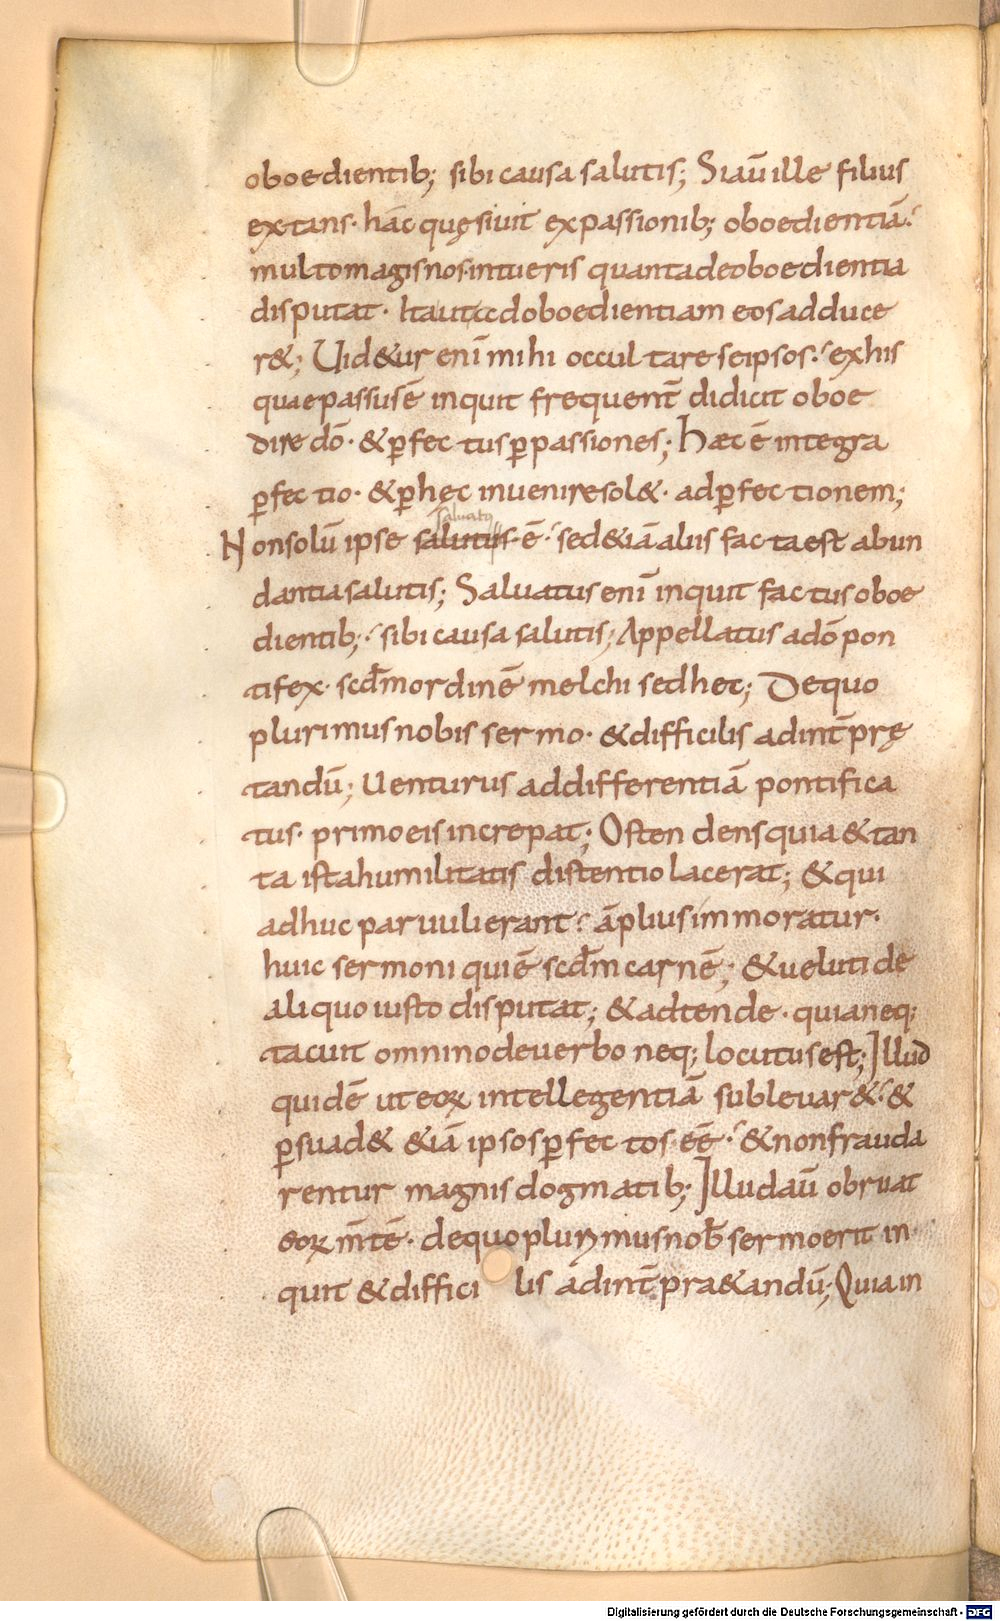 oboedientib; sibi causa salutis; Siaū ille filius
extans· hāc quęsiuit expassionib; oboedientiā:
multomagisnos·intueris quantadeoboedientia
disputat· Itautadoboedientiam eosadduce
r&; Uid&ur enī mihi occultareseipsos: exhis
quaepassusē inquit frequent̄ didicit oboe
dire dō· &ꝑfectusꝑpassiones; Haec ē integra
ꝑfectio· &ꝑhęc inueniresol&· adꝑfectionem;
salvatꝰ
Nonsolū ipse salutus·ē: sed&iā aliis factaest abun
dantiasalutis; Saluatus enī inquit factus oboe
dientib;: sibi causa salutis; Appellatus adō pon
tifex· scd̄m ordinē melchisedhec; Dequo
plurimus nobis sermo· &difficilis adint̄prę
tandū; Uenturus addifferentiā pontifica
tus· primoeisincrepat; Ostendensquia&tan
ta istahumilitatis distentio lacerat; &qui
adhuc paruulierant: āpliusimmoratur·
huic sermoni quiē scd̄m carnē; &uelutide
aliquo iusto disputat; &adtende· quianeq;
tacuit omninodeuerbo neq; locutusest; Illud
quidē ut eoꝝ intellegentiā subleuar&: &
ꝑsuad& &iā ipsosꝑfectos·eē: &nonfrauda
rentur magnis dogmatib; Illudaū obruat
eoꝝ m̄tē· dequoplurimusnob̄ sermoerit in
quit &difficilis adint̄pra&andū; Quia in
Digitalisierung gefördert durch die Deutsche Forschungsgemeinschaft - DFG